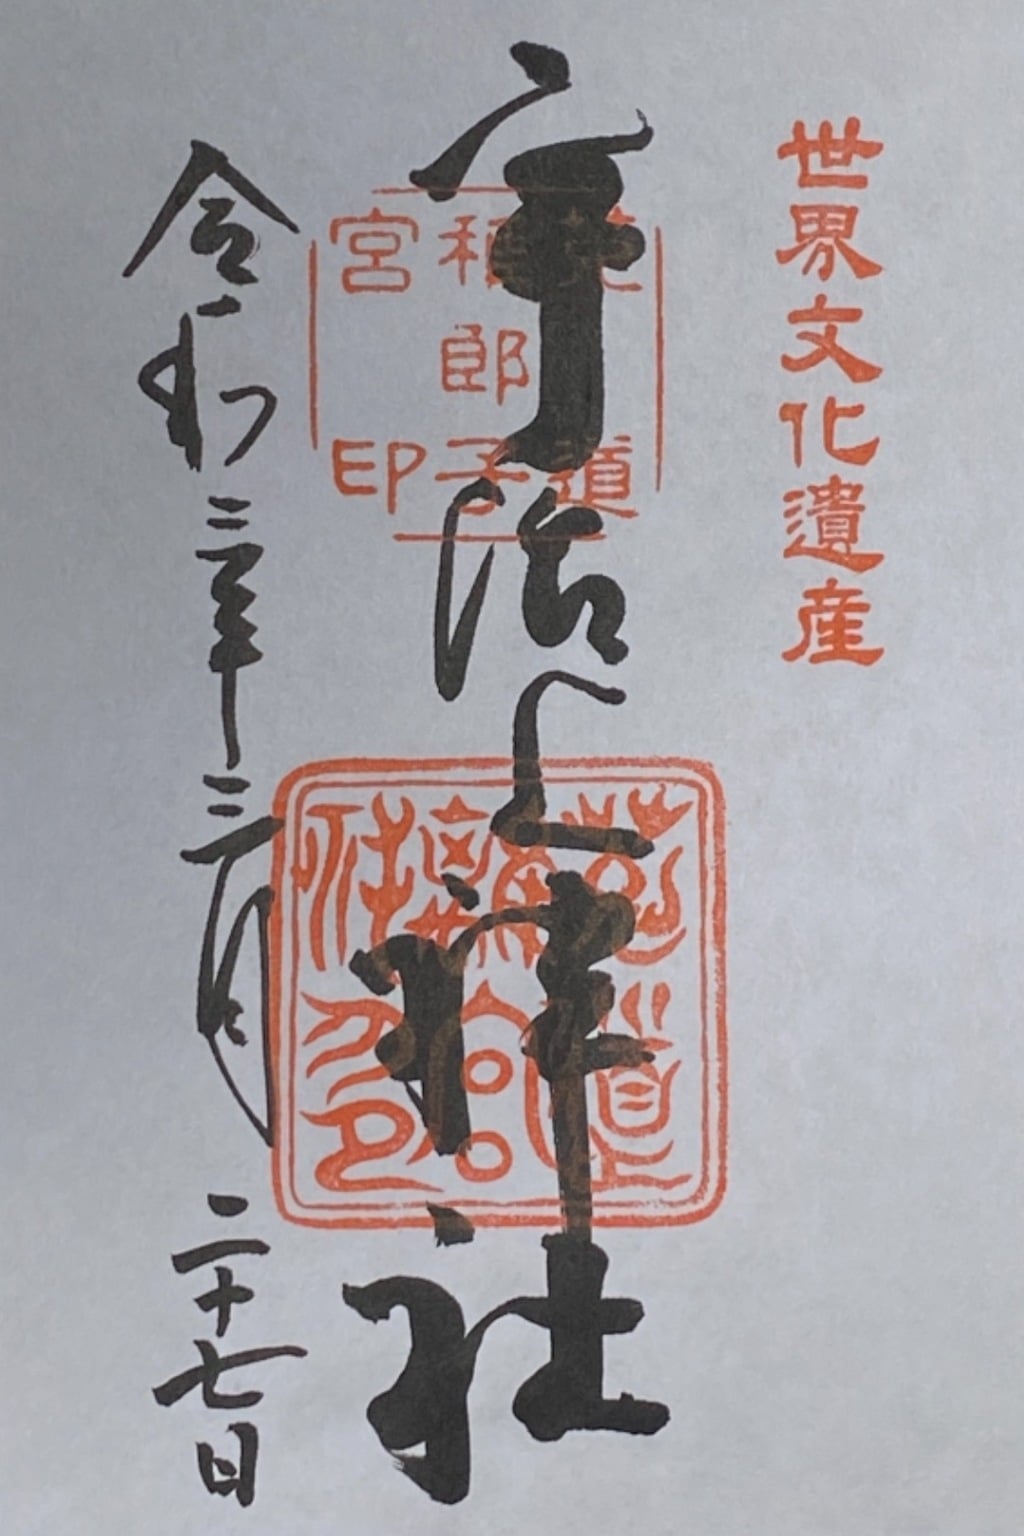 世界文化遺産
宇治上神社
菟道
稚郎子
宮印
令和三年三月
二十七日